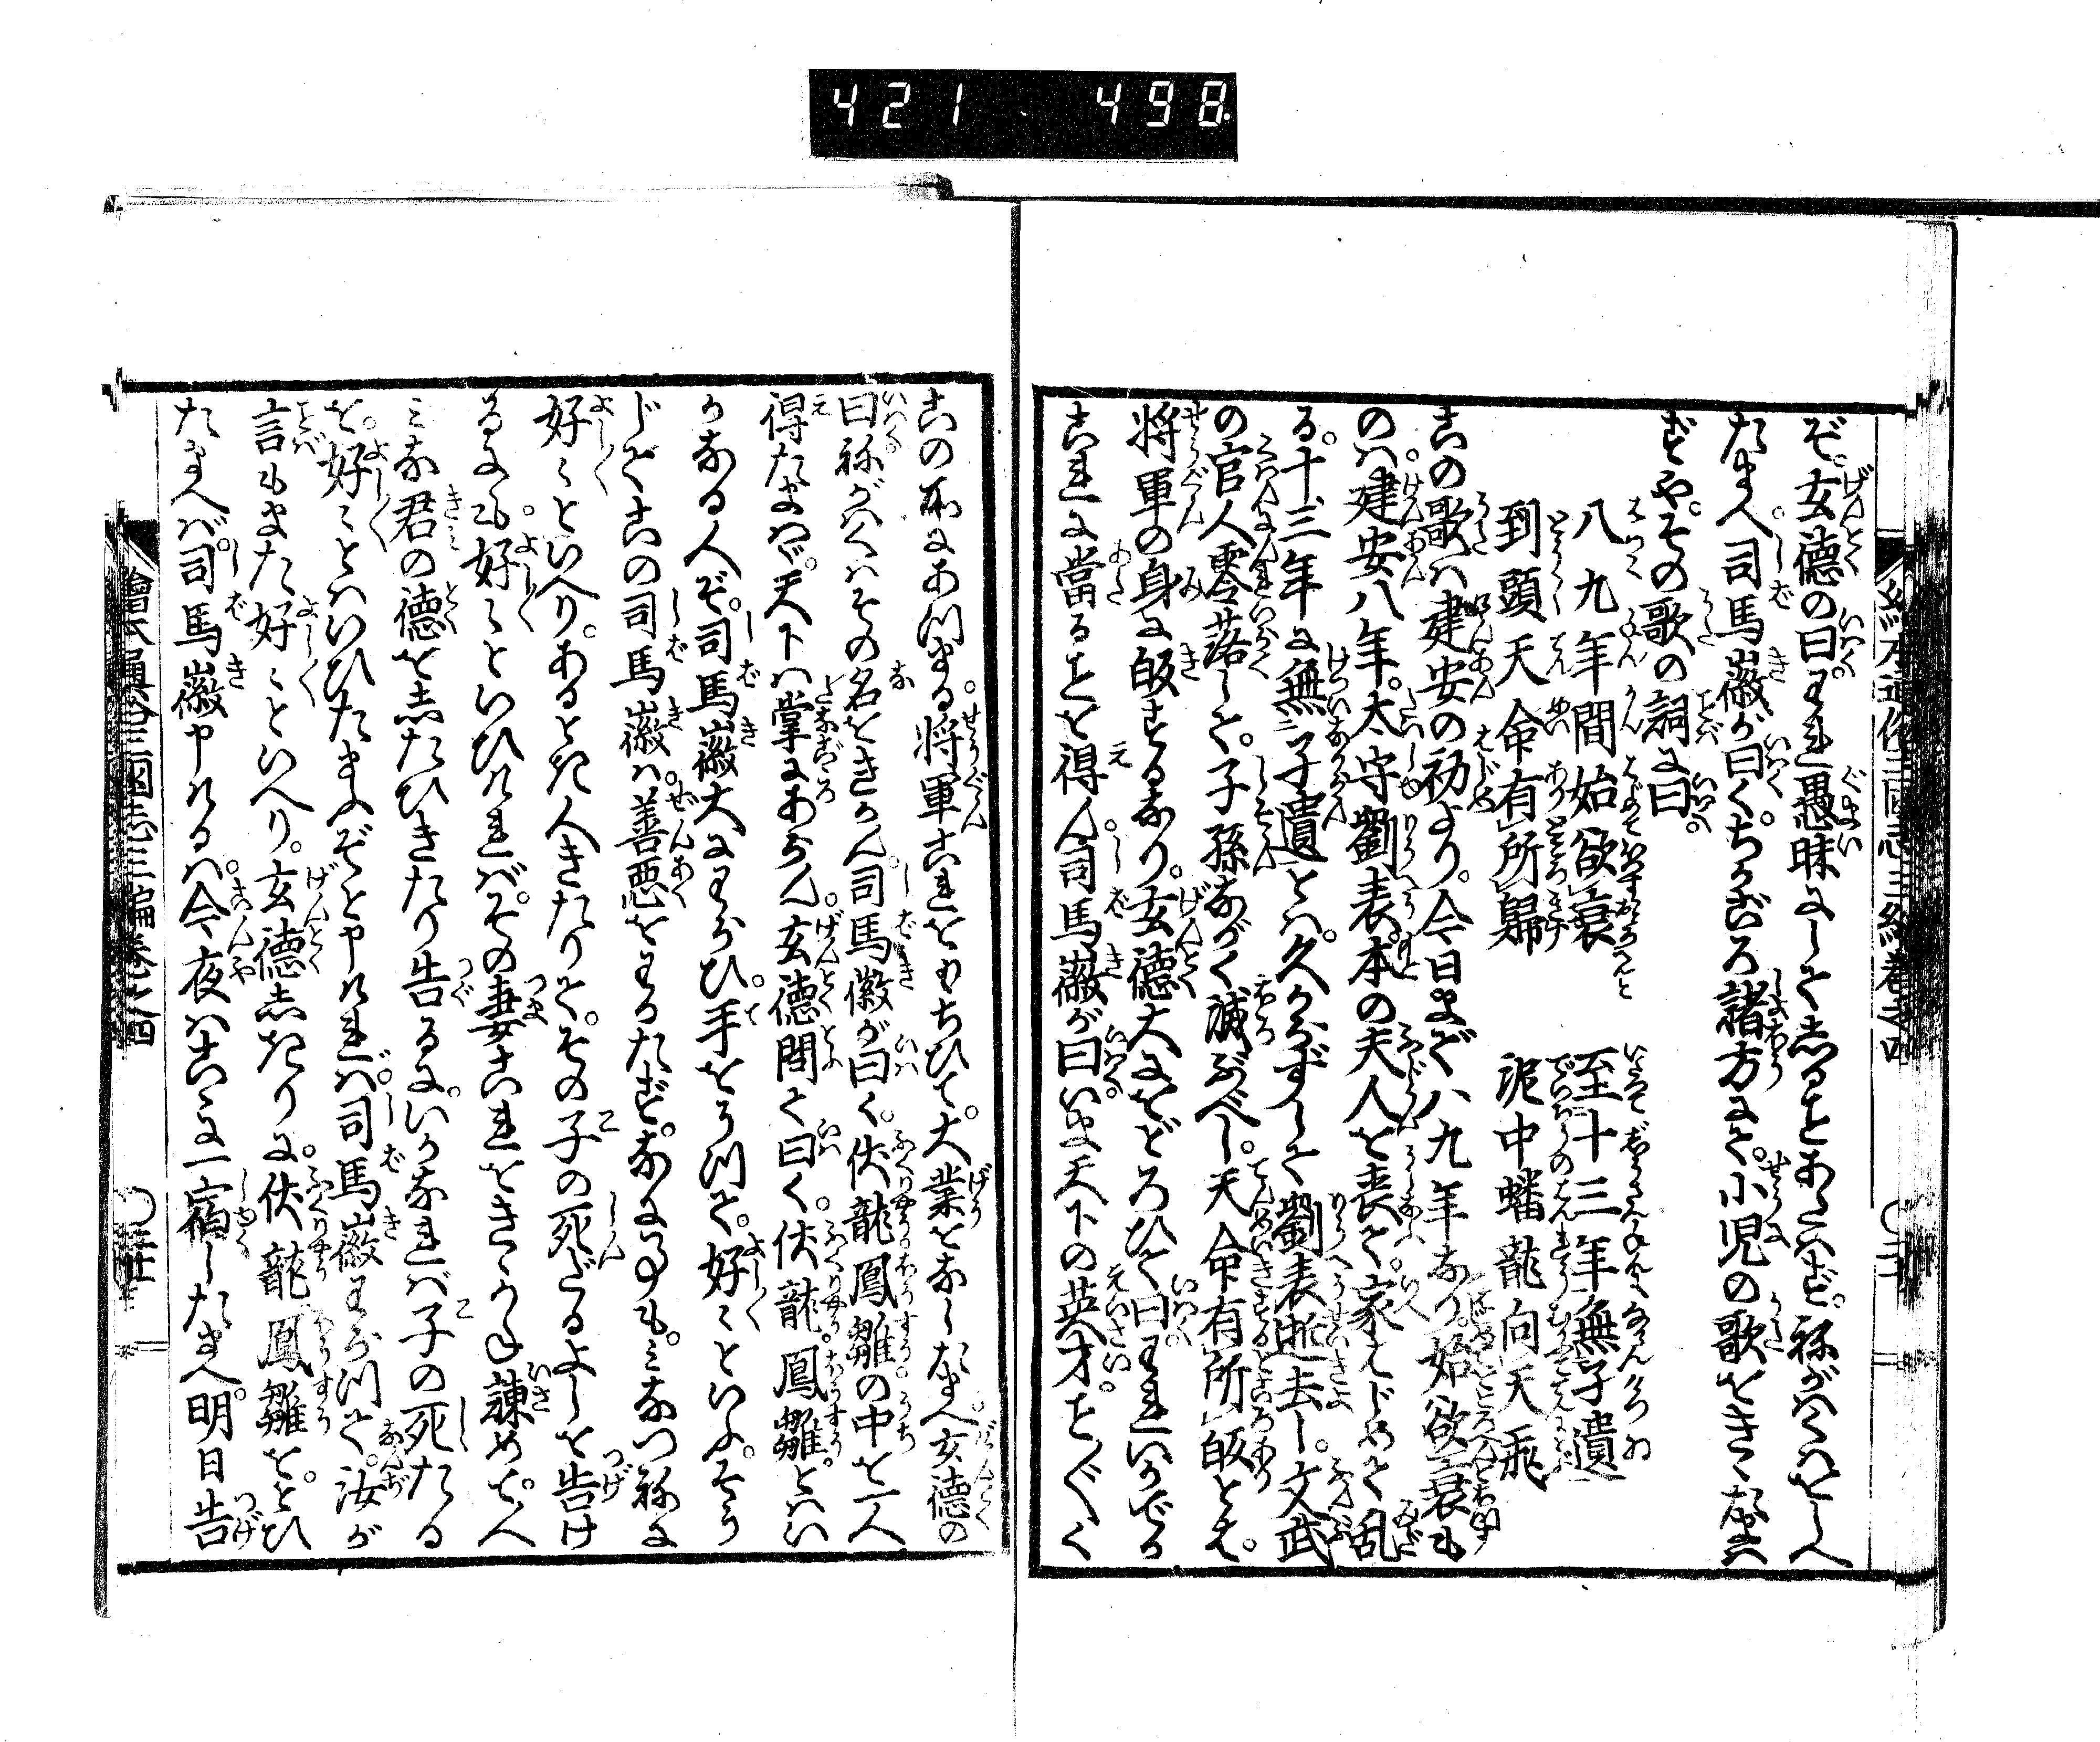 421 498
繪本通俗三國志三編卷之四
ぞ。玄徳の曰。われ愚昧にして志ることあたはず。ねがはくはをしへ
たまへ。司馬徽が曰く。ちかごろ諸方にて。小児の歌をきゝたまは
ずや。その歌の詞に曰。
八九年間始欲衰 至十三年無孑遺
到頭天命有所歸 泥中蟠龍向天飛
この歌は建安の初より。今日まで八九年なり。始欲衰も
のは。建安八年。太守劉表。本の夫人を喪て。家はじめて乱
る。十三年に無孑遺とは。久からずして劉表逝去し。文武
の官人零落して。子孫ながく滅ぶべし。天命有所皈とは。
将軍の身に皈するなり。玄徳大にをどろひて曰。われいかでか
これに當ることを得ん。司馬徽が曰。いま天下の英才。ことごとく
この所にあつまる。将軍これをもちひて。大業をなしたまへ。玄徳の
曰。ねがはくはその名をきかん。司馬徽が曰く。伏龍鳳雛の中を一人
得たまはゞ。天下は掌にあらん。玄徳問て曰く。伏龍。鳳雛。とはい
かなる人ぞ。司馬徽大にわらひ。手をうつて。好々といふ。そう
じてこの司馬徽は。善悪をわかたず。なにの事も。みなつねに
好々といへり。あるとき人きたりて。その子の死たるよしを告け
るにも。好々といひければ。その妻これをきゝかね諫めて。人
みな君の徳を志たひきたり告るに。いかなれば子の死たる
を。好々とはいひたまふぞと申ければ。司馬徽わらつて。汝が
言もまた好々といへり。玄徳志きりに。伏龍鳳雛を。とひ
たまへば。司馬徽申けるは。今夜はこゝに一宿したまへ。明日告
繪本通俗三國志三編卷之四